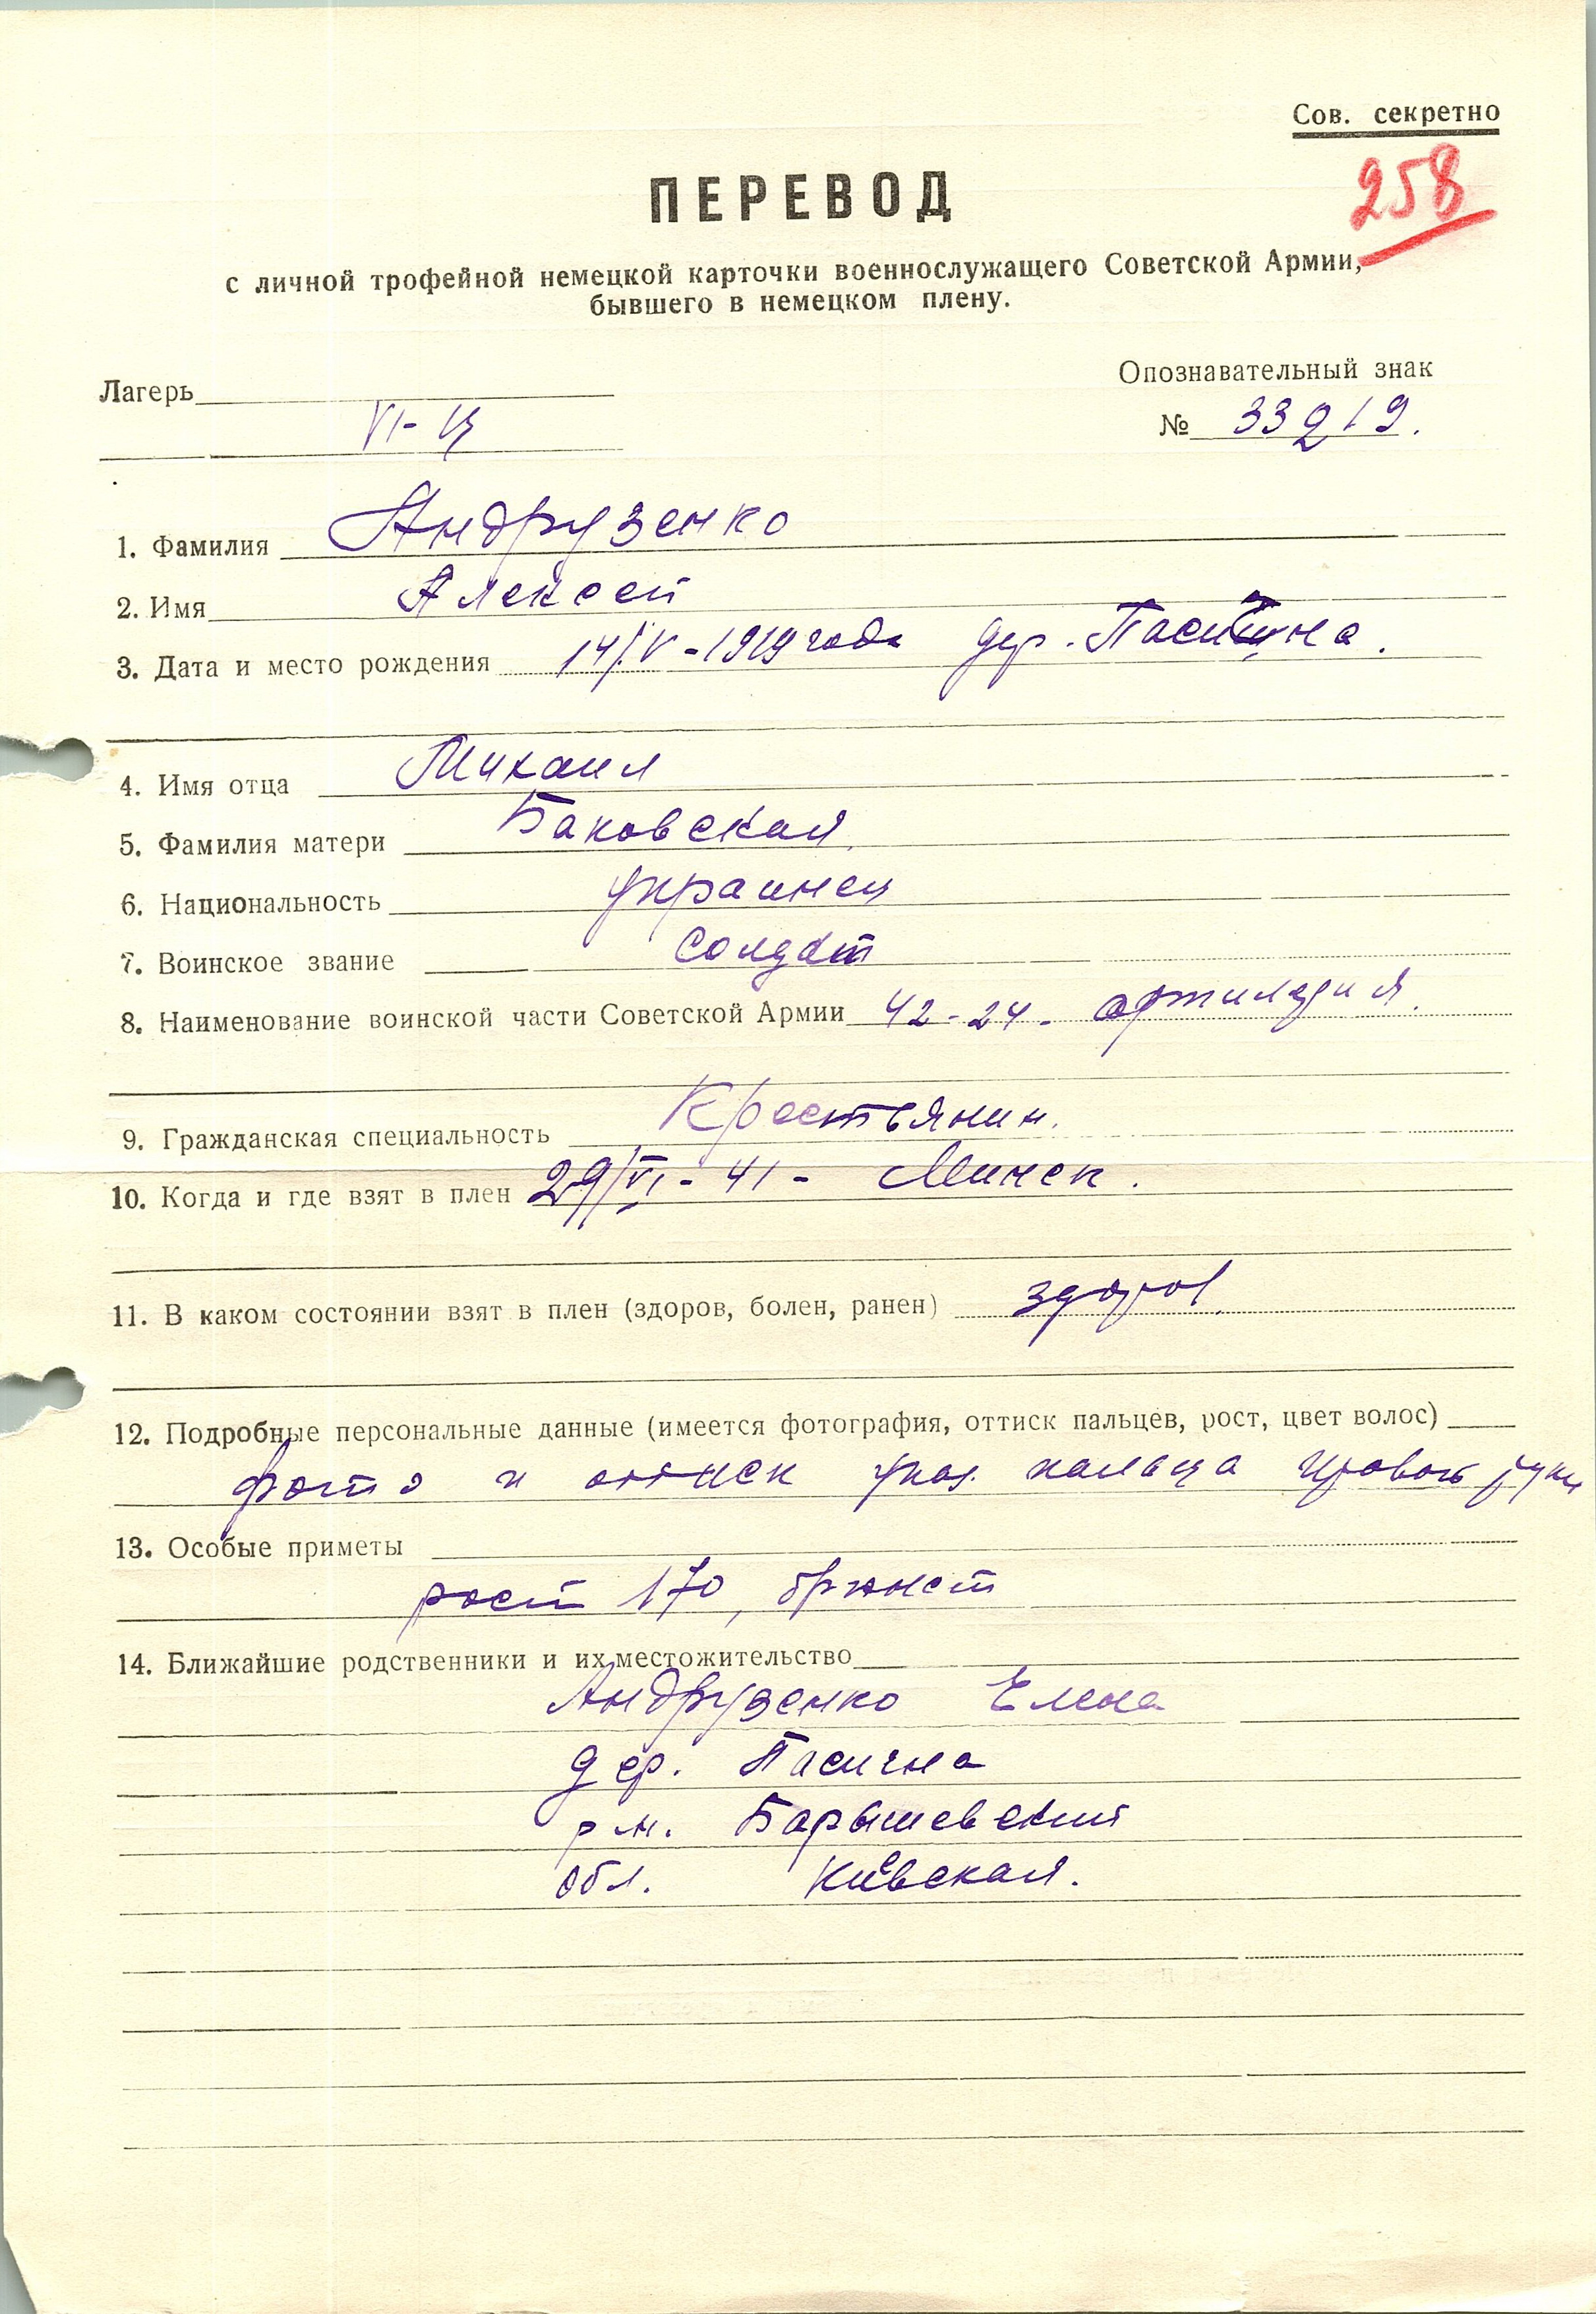 Сов. секретно
258
ПЕРЕВОД
с личной трофейной немецкой карточки военнослужащего Советской Армии,
бывшего в немецком плену.
Опознавательный знак
Лагерь
VI-Ц
№ 33219.
1. Фамилия Андрузенко
2. Имя Алексей
3. Дата и место рождения 14/V-1919 года дер.
4. Имя отца Михаил
5. Фамилия матери Баковская
6. Национальность украинец
7. Воинское звание солдат
8. Наименование воинской части Советской Армии 42-24- артилерия.
9. Гражданская специальность Крестьянин.
10. Когда и где взят в плен 29/VI-41- Минск.
11. В каком состоянии взят в плен (здоров, болен, ранен) здоров.
12. Подробные персональные данные (имеется фотография, оттиск пальцев, рост, цвет волос)
фото и оттиск указ. пальца правой руки
13. Особые приметы
рост 170, брюнет
14. Ближайшие родственники и их местожительство
Андрузенко Елена
дер. Пасична
р-н. Барышевский
обл. Киевская.